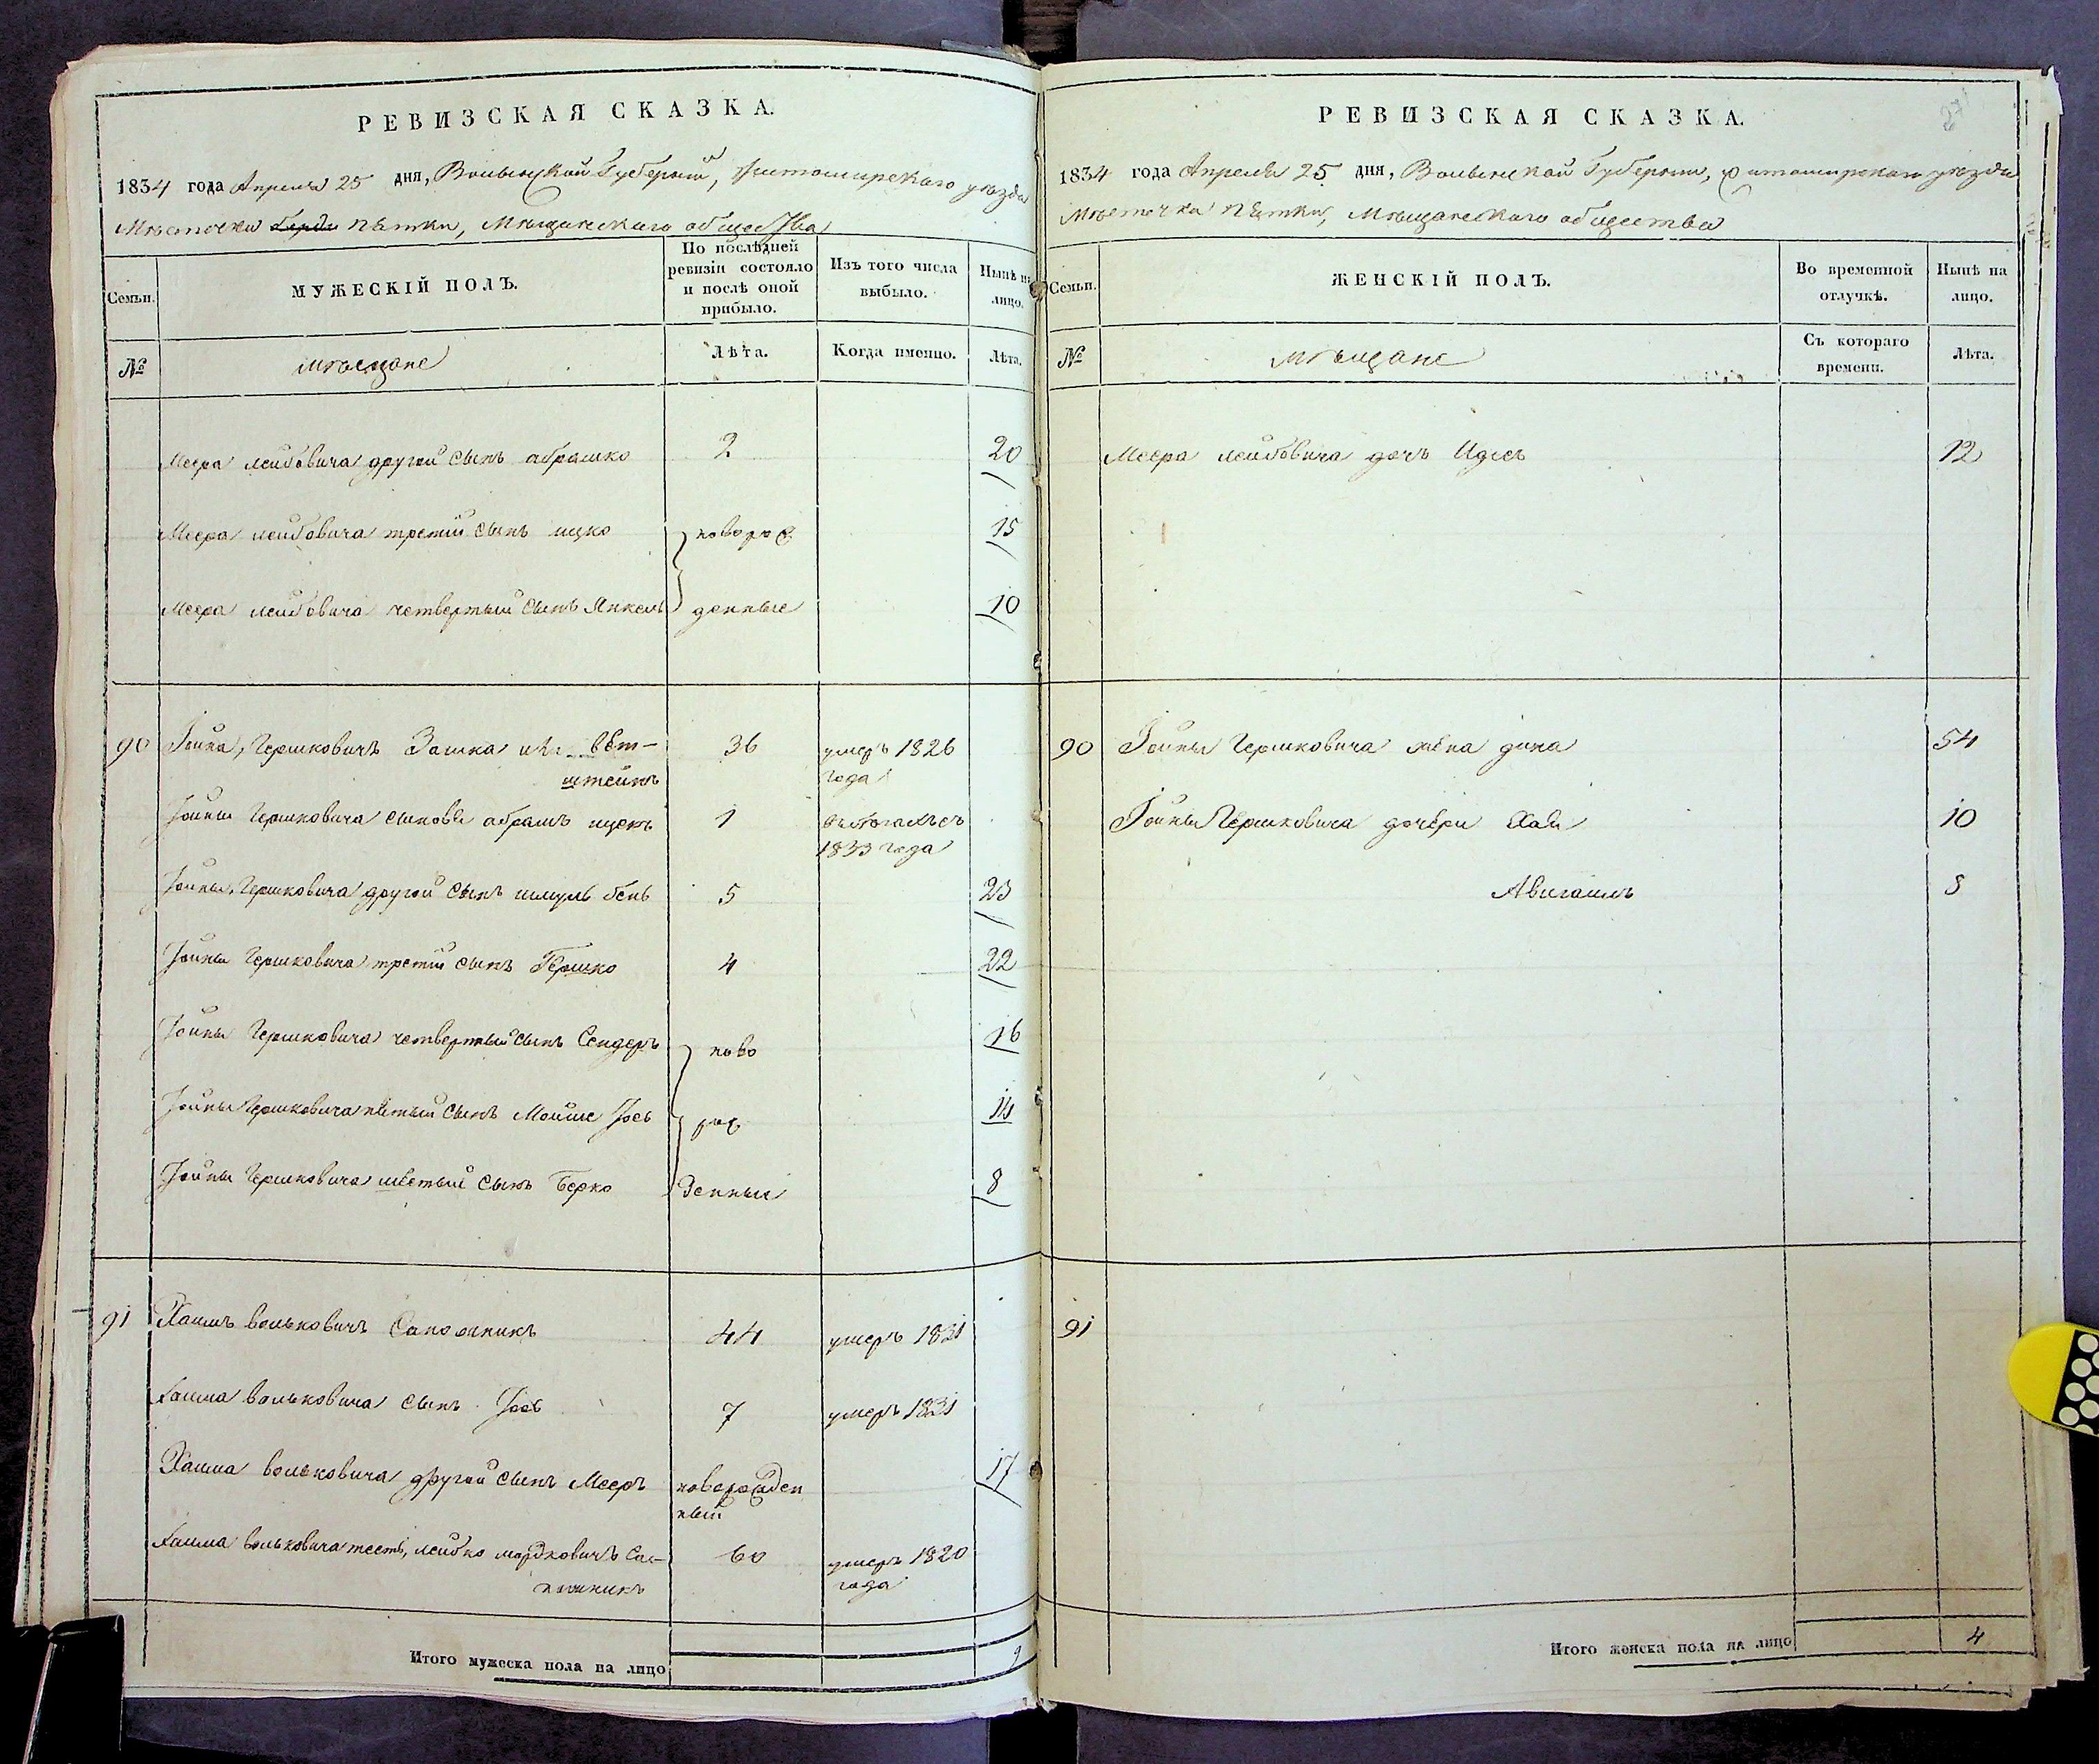 РЕВИЗСКАЯ СКАЗКА.
1834 года Апреля 25 дня, Волынской Губернии, Житомирского уезда
Местечка пятки, Мещанского общества
Семьи.
МУЖЕСКІЙ ПОЛЪ.
По послѣдней ревизіи состояло и послѣ оной прибыло.
Изъ того числа выбыло.
Нынѣ на лицо.
№
мѣщане
Лѣта.
Когда именно.
Лѣта.
Меера лейбовича другой сынъ абрамко 2 20
Меера лейбовича третий сынъ ицко новорож 15
Меера лейбовича четвертый сынъ Янкель денные 10
90 Іойна Гершковичъ
штейнъ 36 умеръ 1826 года
Іойны Гершковича сыновья абрамъ ицекъ 1 1833 года
Іойны Гершковича другой сынъ шмуль бенъ 5 23
Іойны Гершковича третий сынъ Гершко 4 22
Іойны Гершковича четвертый сынъ Сендеръ ново 16
Іойны Гершковича пятый сынъ Мойше Іось рож 14
Іойны Гершковича шестый сынъ Берко денныи 8
91 Хаимъ вольковичъ Сапожникъ 44 умеръ 1831
Хаима вольковича сынъ Іось 7 умеръ 1831
Хаима вольковича другой сынъ Мееръ новорожден
ный 17
Хаима вольковича тесть, лейбко мордковичъ Са-
пожникъ 60 умеръ 1820 года
Итого мужеска пола на лицо 9
РЕВИЗСКАЯ СКАЗКА.
1834 года Апреля 25 дня, Волынской Губернии, Житомирского уезда
Местечка пятки, Мещанского общества
Семьи.
ЖЕНСКІЙ ПОЛЪ.
Во временной отлучкѣ.
Нынѣ на лицо.
№
мѣщане
Съ котораго времени.
Лѣта.
Меера лейбовича дочь Идесь 12
90 Іойны Гершковича жена дина 54
Іойны Гершковича дочери Хая 10
Авигаиль 8
91
Итого женска пола на лицо 4